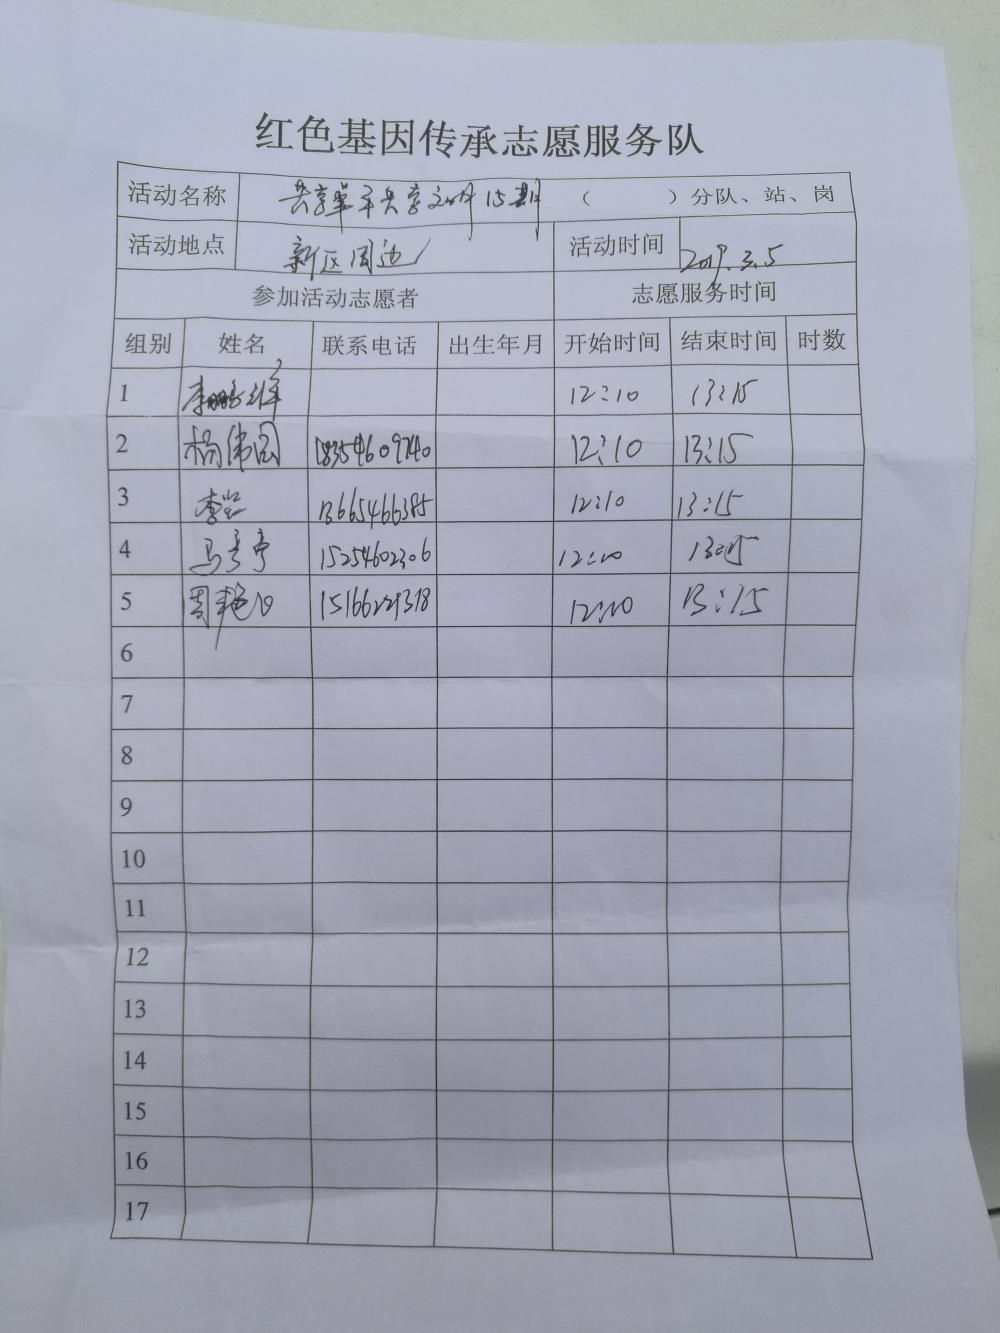 红色基因传承志愿服务队
活动名称 共享单车共享文明 15期 （ ）分队、站、岗
活动地点 新区周边 活动时间 2019.3.5
参加活动志愿者 志愿服务时间
组别 姓名 联系电话 出生年月 开始时间 结束时间 时数
1 12:10 13:15
2 杨伟国 18354609740 12:10 13:15
3 13665466385 12:10 13:15
4 15254602306 12:10 13:15
5 12:10 13:15
6
7
8
9
10
11
12
13
14
15
16
17